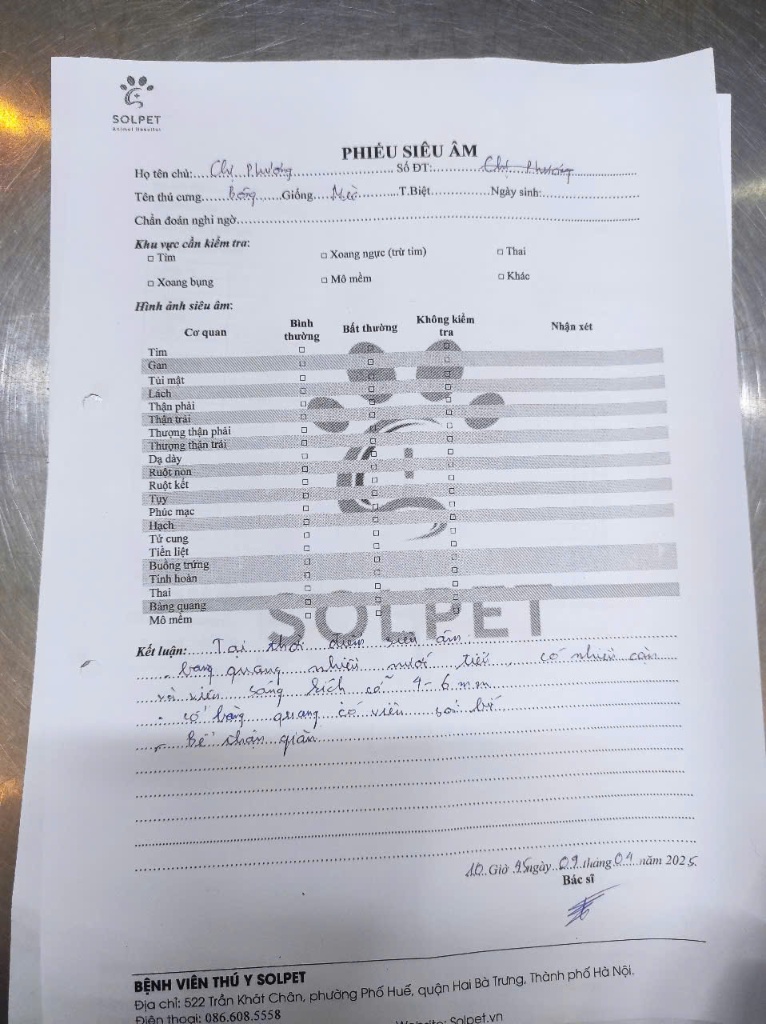 SOLPET
Animal Hospital
PHIẾU SIÊU ÂM
Họ tên chủ: Chị Phương Số ĐT: Chị Phương
Tên thú cưng Bông Giống Mèo T.Biệt Ngày sinh:
Chẩn đoán nghi ngờ
Khu vực cần kiểm tra:
□ Tim □ Xoang ngực (trừ tim) □ Thai
□ Xoang bụng □ Mô mềm □ Khác
Hình ảnh siêu âm:
Cơ quan Bình thường Bất thường Không kiểm tra Nhận xét
Tim □ □ □
Gan □ □ □
Túi mật □ □ □
Lách □ □ □
Thận phải □ □ □
Thận trái □ □ □
Thượng thận phải □ □ □
Thượng thận trái □ □ □
Dạ dày □ □ □
Ruột non □ □ □
Ruột kết □ □ □
Tụy □ □ □
Phúc mạc □ □ □
Hạch □ □ □
Tử cung □ □ □
Tiền liệt □ □ □
Buồng trứng □ □ □
Tinh hoàn □ □ □
Thai □ □ □
Bàng quang □ □ □
Mô mềm □ □ □
SOLPET
Kết luận: Tại thời điểm siêu âm
- bàng quang nhiều nước tiểu, có nhiều cặn
và viên sáng kích cỡ 4-6 mm
- cổ bàng quang có viên sỏi
- Bể thận giãn
10 Giờ 45 ngày 09 tháng 04 năm 2025
Bác sĩ
BỆNH VIỆN THÚ Y SOLPET
Địa chỉ: 522 Trần Khát Chân, phường Phố Huế, quận Hai Bà Trưng, Thành phố Hà Nội.
Điện thoại: 086.608.5558 Website: Solpet.vn